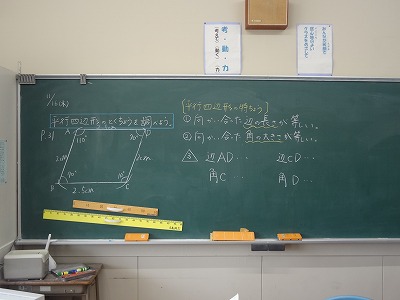 考・動・力
平行四辺形のとくちょうを調べよう。
P.31
A
D
110°
70°
2cm
2cm
70°
110°
B
2.5cm
C
[平行四辺形の特ちょう]
①向かい合った辺の長さが等しい。
②向かい合った角の大きさが等しい。
③ 辺AD… 辺CD…
角C… 角D…